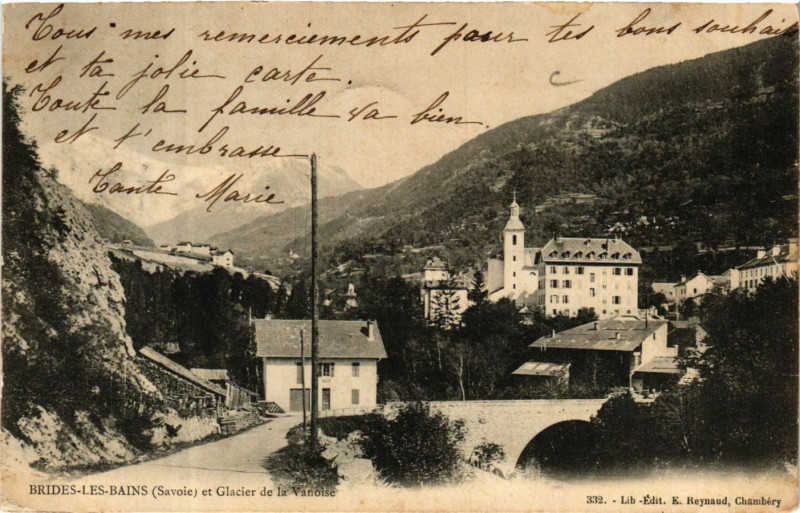 Tous mes remerciements pour tes bons souhaits
et ta jolie carte.
Toute la famille va bien
et t'embrasse
Tante Marie
BRIDES-LES-BAINS (Savoie) et Glacier de la Vanoise
332. - Lib -Édit. E. Reynaud, Chambéry